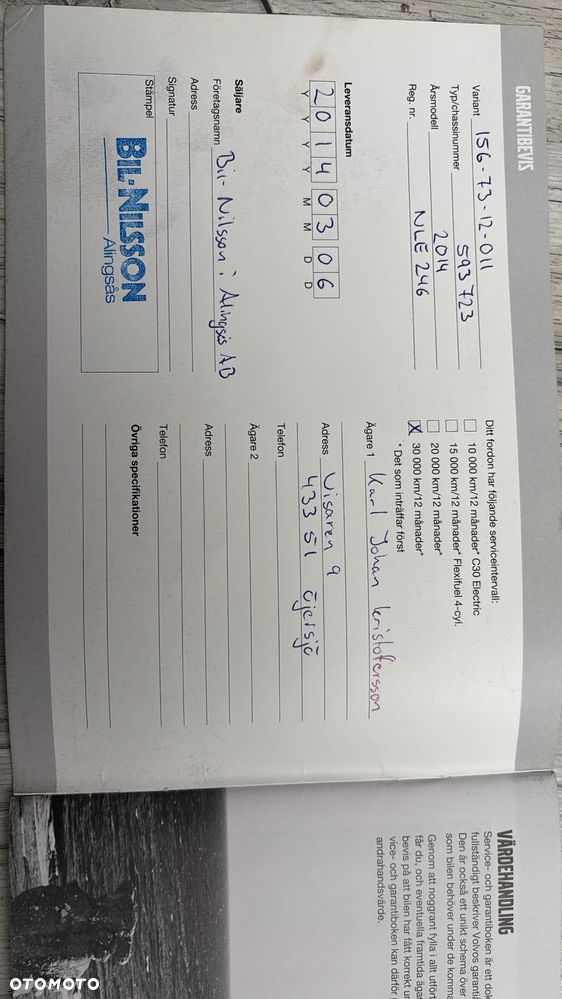 GARANTIBEVIS
Variant 156-73-12-011
Typ/chassinummer 593723
Årsmodell 2014
Reg. nr. NLE 246
Leveransdatum
2 0 1 4 0 3 0 6
Y Y Y Y M M D D
Säljare
Företagsnamn Bil-Nilsson i Alingsås AB
Adress
Signatur
Stämpel
BIL-NILSSON
Alingsås
Ditt fordon har följande serviceintervall:
10 000 km/12 månader* C30 Electric
15 000 km/12 månader* Flexifuel 4-cyl.
20 000 km/12 månader*
X 30 000 km/12 månader*
* Det som inträffar först
Ägare 1 Karl Johan Kristoffersson
Adress Visaren 9
433 51 Öjersjö
Telefon
Ägare 2
Adress
Telefon
Övriga specifikationer
VÄRDEHANDLING
Service- och garantiboken är ett dok
fullständigt beskriver Volvos garantiå
Den är också ett unikt schema över
som bilen behöver under de komma
Genom att noggrant fylla i allt utfört
får du, och eventuella framtida ägar
bevis på att bilen har fått korrekt un
vice- och garantiboken kan därför
andrahandsvärde.
OTOMOTO